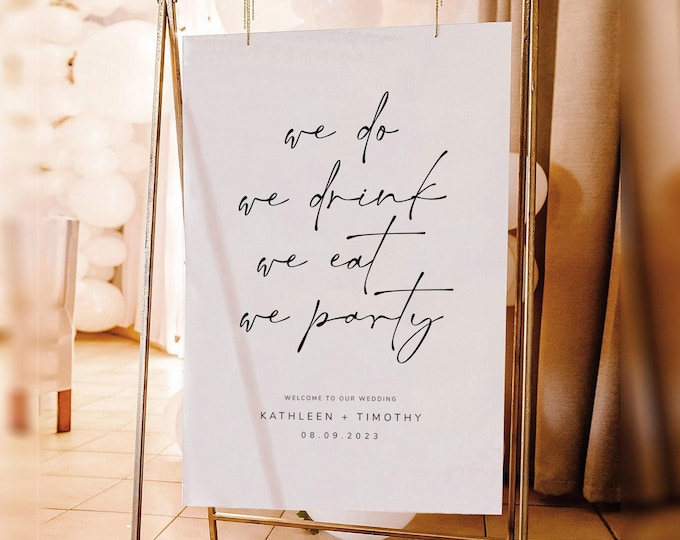 we do
we drink
we eat
we party
WELCOME TO OUR WEDDING
KATHLEEN + TIMOTHY
08.09.2023